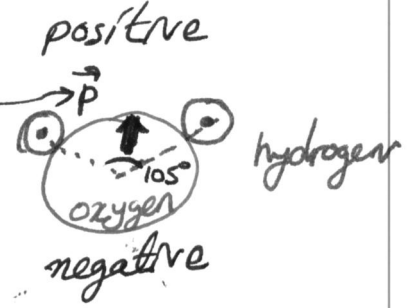 positive
p⃗
105°
hydrogen
oxygen
negative